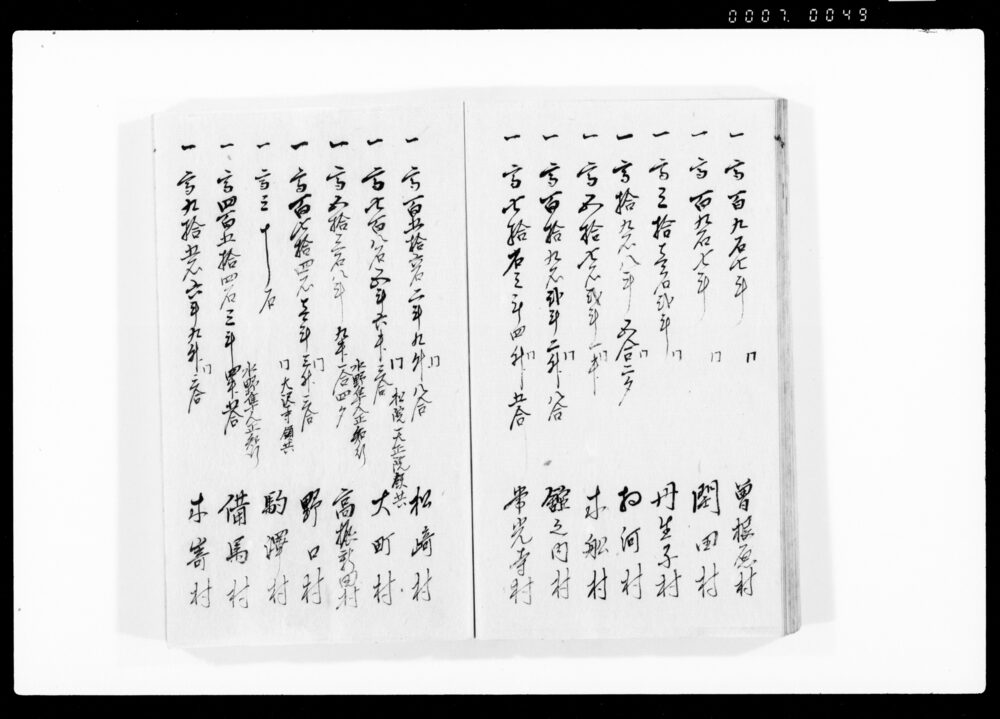 0007. 0049
一 高百九石七斗 曽根原村
一 高百九石七斗 閏田村
一 高三拾壱石弐斗 丹生子村
一 高拾九石八斗 五合二夕 村
一 高五拾七石弐斗一升 木舩村
一 高百拾九石弐斗二升八合 舘之内村
一 高七拾石三斗四升五合 常光寺村
一 高百五拾六石二斗九升八合 松崎村
一 高七百八石五斗六升三合 大町村
一 高五拾三石八斗九升一合四夕 高根新田村
一 高百七拾四石壱斗三升二合 野口村
一 高三十石 大沢寺領共 駒澤村
一 高四百五拾四石三斗 借馬村
一 高九拾五石六斗九升二合 木嵜村